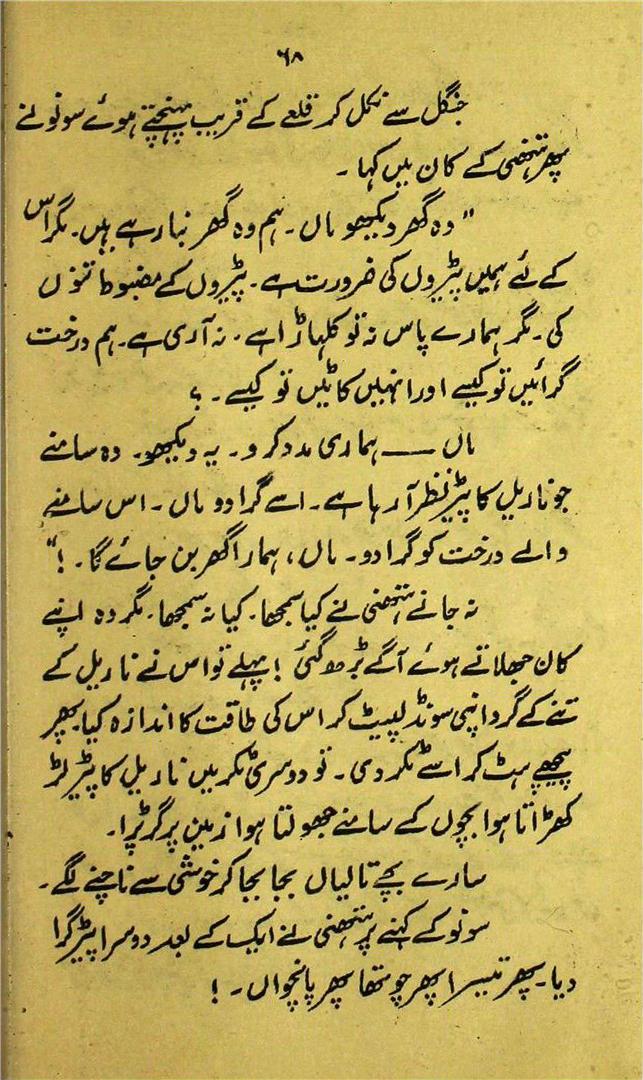 ۶۸
جنگل سے نکل کر قلعے کے قریب پہنچتے ہوئے سونو نے
پھر ہتھنی کے کان میں کہا ۔
"وہ گھر دیکھو ماں ۔ ہم وہ گھر بنا رہے ہیں ۔ مگر اس
کے لئے ہمیں پیڑوں کی ضرورت ہے ۔ پیڑوں کے مضبوط تنوں
کی ۔ مگر ہمارے پاس نہ تو کلہاڑا ہے ۔ نہ آری ہے ۔ ہم درخت
گرائیں تو کیسے اور انہیں کاٹیں تو کیسے ۔ ؟
ماں —— ہماری مدد کرو ۔ یہ دیکھو ۔ وہ سامنے
جو ناریل کا پیڑ نظر آ رہا ہے ۔ اسے گرا دو ماں ۔ اس سامنے
والے درخت کو گرا دو ۔ ماں ، ہمارا گھر بن جائے گا ۔ !"
نہ جانے ہتھنی نے کیا سمجھا ۔ کیا نہ سمجھا ۔ مگر وہ اپنے
کان جھلاتے ہوئے آگے بڑھ گئی ! پہلے تو اس نے ناریل کے
تنے کے گرد اپنی سونڈ لپیٹ کر اس کی طاقت کا اندازہ کیا پھر
پیچھے ہٹ کر اسے ٹکر دی ۔ تو دوسری ٹکر میں ناریل کا پیڑ لڑ
کھڑاتا ہوا بچوں کے سامنے جھولتا ہوا زمین پر گر پڑا ۔
سارے بچے تالیاں بجا بجا کر خوشی سے ناچنے لگے ۔
سونو کے کہنے پر ہتھنی نے ایک کے بعد دوسرا پیڑ گرا
دیا ۔ پھر تیسرا پھر چوتھا پھر پانچواں ۔ !